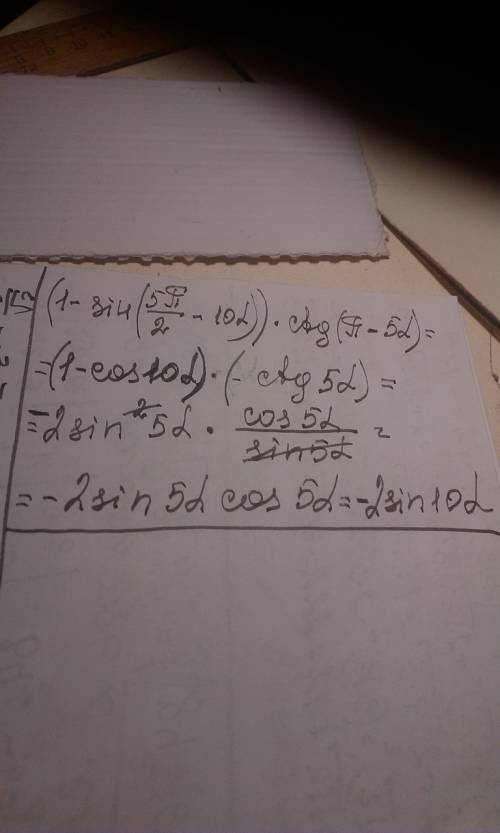 (1 - sin(5π/2 - 10α)) · ctg(π - 5α) =
= (1 - cos10α) · (- ctg 5α) =
= -2sin²5α · cos 5α / sin 5α =
= -2sin 5α cos 5α = -2sin10α